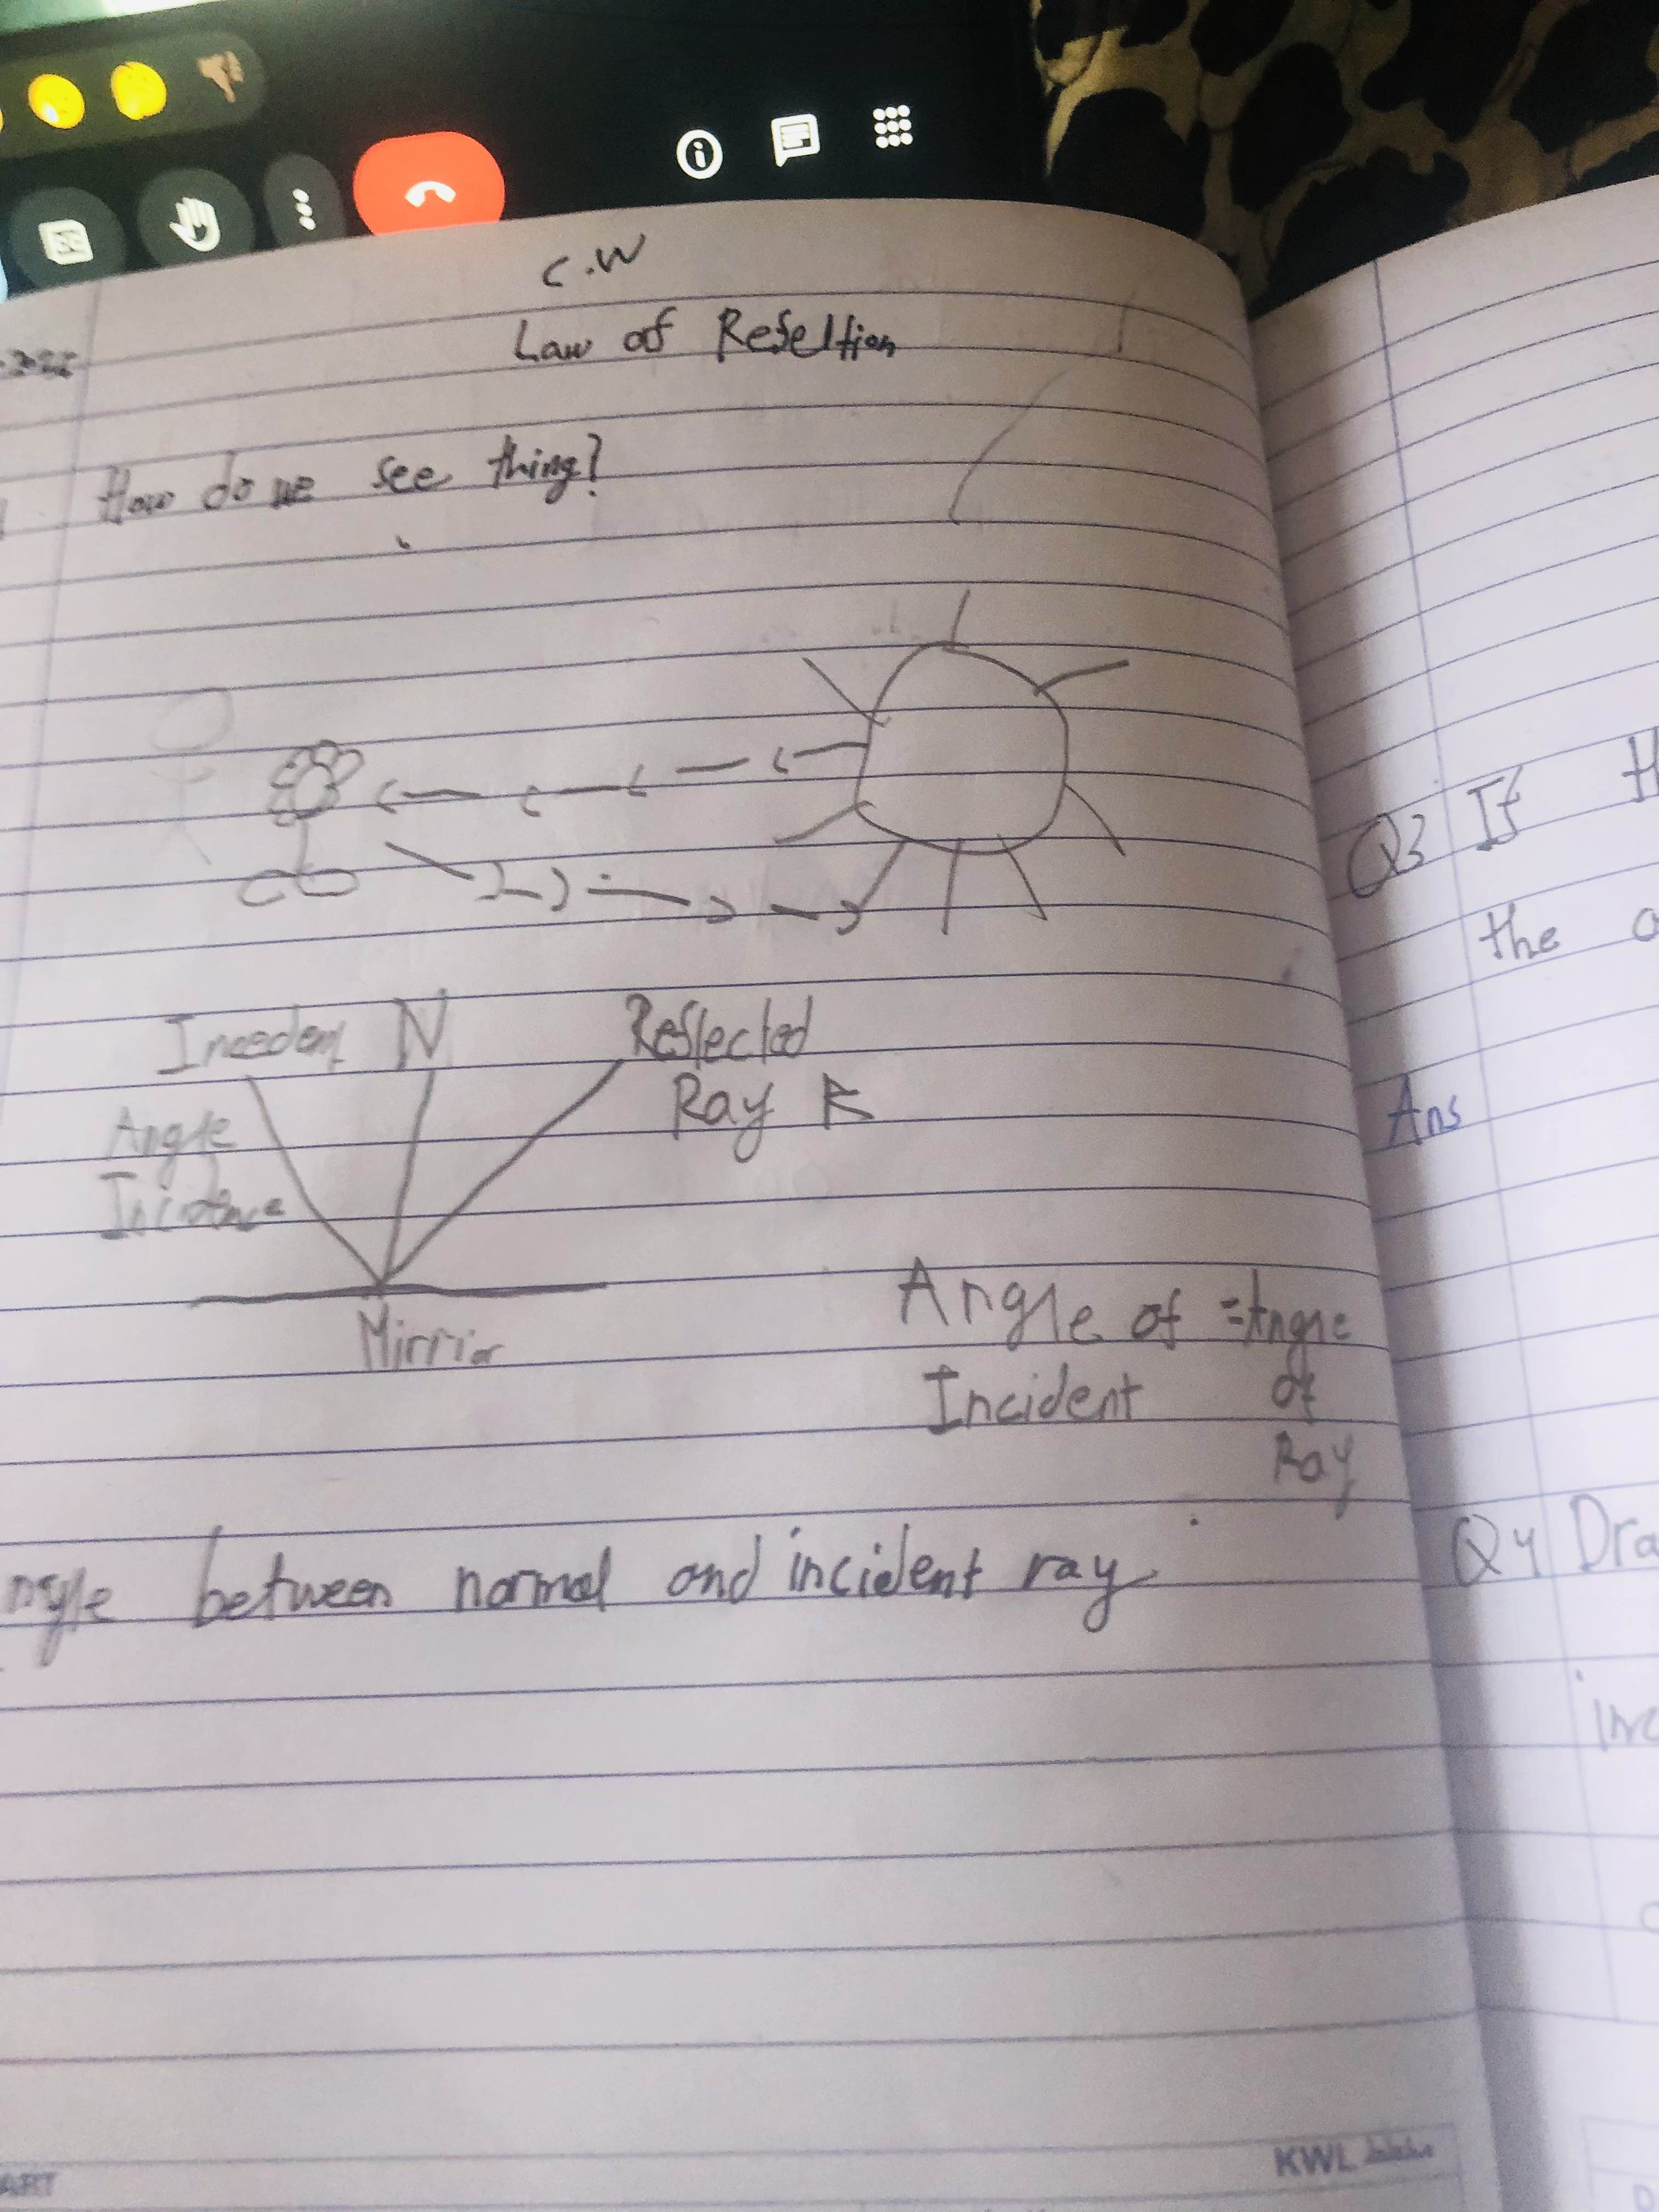 C.W
Law of Refeltion
How do we see thing?
Inceden N Reflected
Ray R
Angle
Incidence
Mirrior
Angle of =Angle
Incident of
Ray
ngle between normal and incident ray
Q3 If
the
Ans
Q4 Dra
inc
KWL
ART